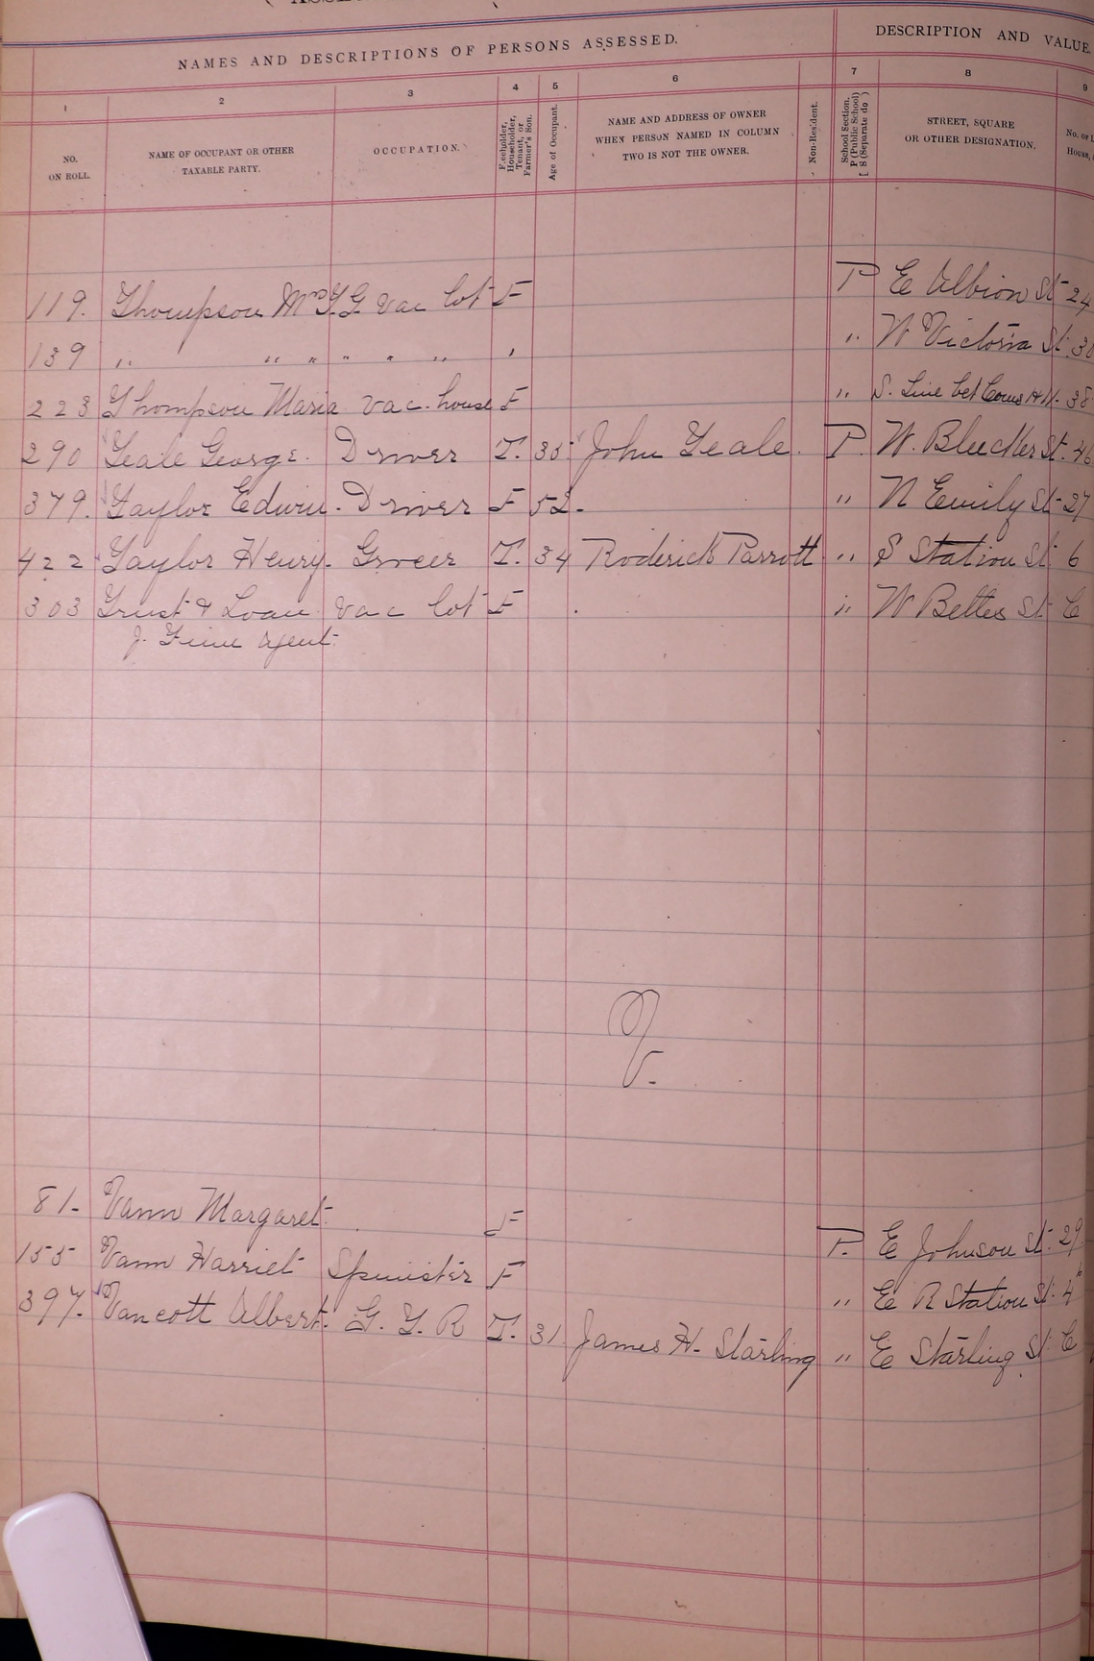 NAMES AND DESCRIPTIONS OF PERSONS ASSESSED.
DESCRIPTION AND VALUE
1 2 3 4 5 6 7 8 9
NO. ON ROLL.
NAME OF OCCUPANT OR OTHER TAXABLE PARTY.
OCCUPATION.
Freeholder, Householder, Tenant, or Farmer's Son.
Age of Occupant.
NAME AND ADDRESS OF OWNER WHEN PERSON NAMED IN COLUMN TWO IS NOT THE OWNER.
Non-Resident.
School Section. P (Public School) S (Separate do )
STREET, SQUARE OR OTHER DESIGNATION.
119. Thompson Mrs T. G Vac lot F P E Albion St 24
139 " " " " " " " " W Victoria St 30
223 Thompson Maria Vac. house F " S. Line bet Cons 38
290 Teale George. Driver T. 35 John Teale. P. W. Bleecker St. 46
379. Taylor Edwin. Driver F 52. " N Emily St 27
422 Taylor Henry. Grocer T. 34 Roderick Parrott " S Station St 6
303 Trust & Loan Vac lot F " W Bettes St C
J. agent.
V.
81- Vann Margaret. F P. E Johnson St. 29
155 Vann Harriet Spinister F " E R Station St. 4
397. Vancott Albert. G. T. R T. 31 James H. Starling " E Starling St C